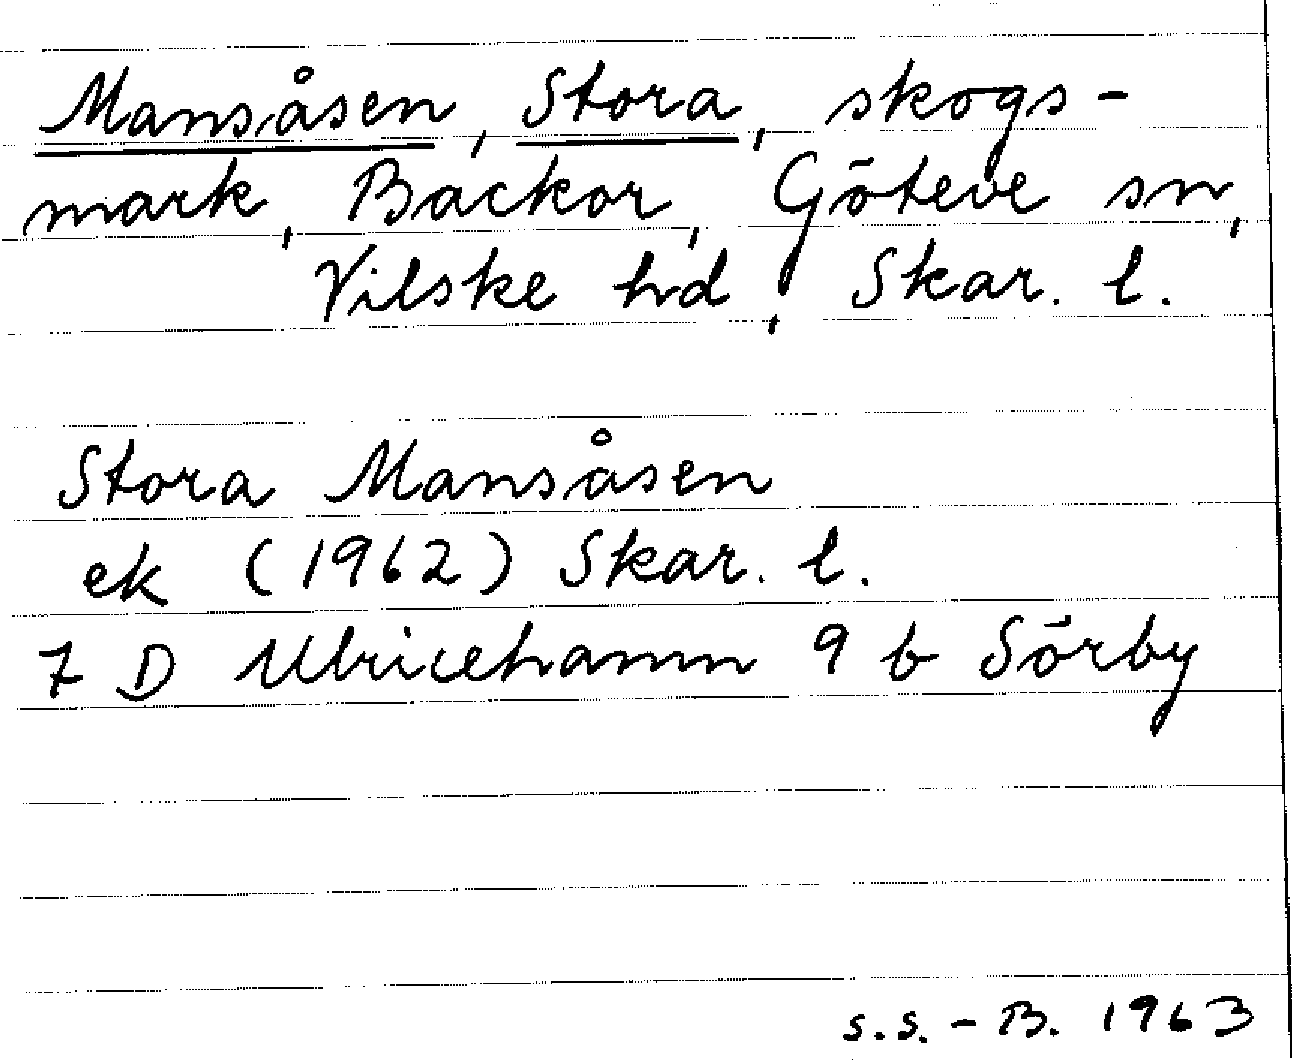 Mansåsen, Stora, skogs-
mark, Backor, Göteve sn,
Vilske hd, Skar. l.
Stora Mansåsen
ek (1962) Skar. l.
7 D Ulricehamn 9 b Sörby
s.s.-B. 1963